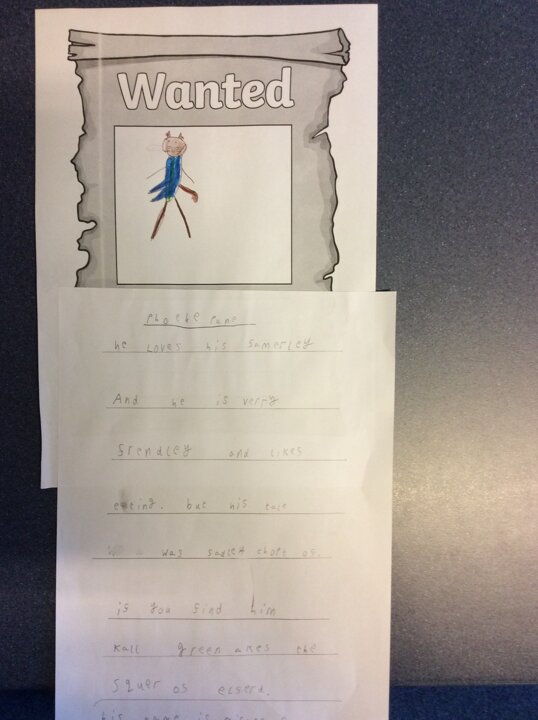 Wanted
Phoebe Pane
he Loves his Samerley
And he is verry
frendley and likes
eating. but his tale
was sadley chopt of.
if you find him
kall green akes the
squer of elserd.
his name is